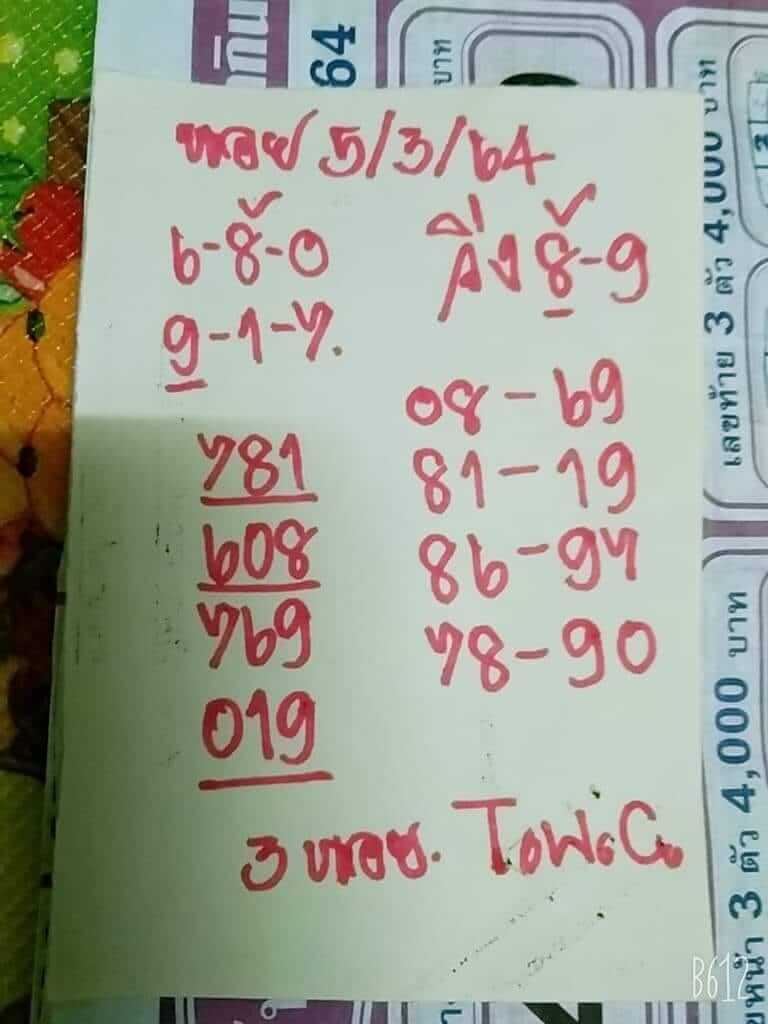 หอย 5/3/64
6-8-0
9-1-7.
วิ่ง 8-9
781
608
769
019
08-69
81-19
86-97
78-90
3 หอย.
64
บาท
เลขท้าย 3 ตัว 4,000 บาท
3 ตัว 4,000 บาท
B612